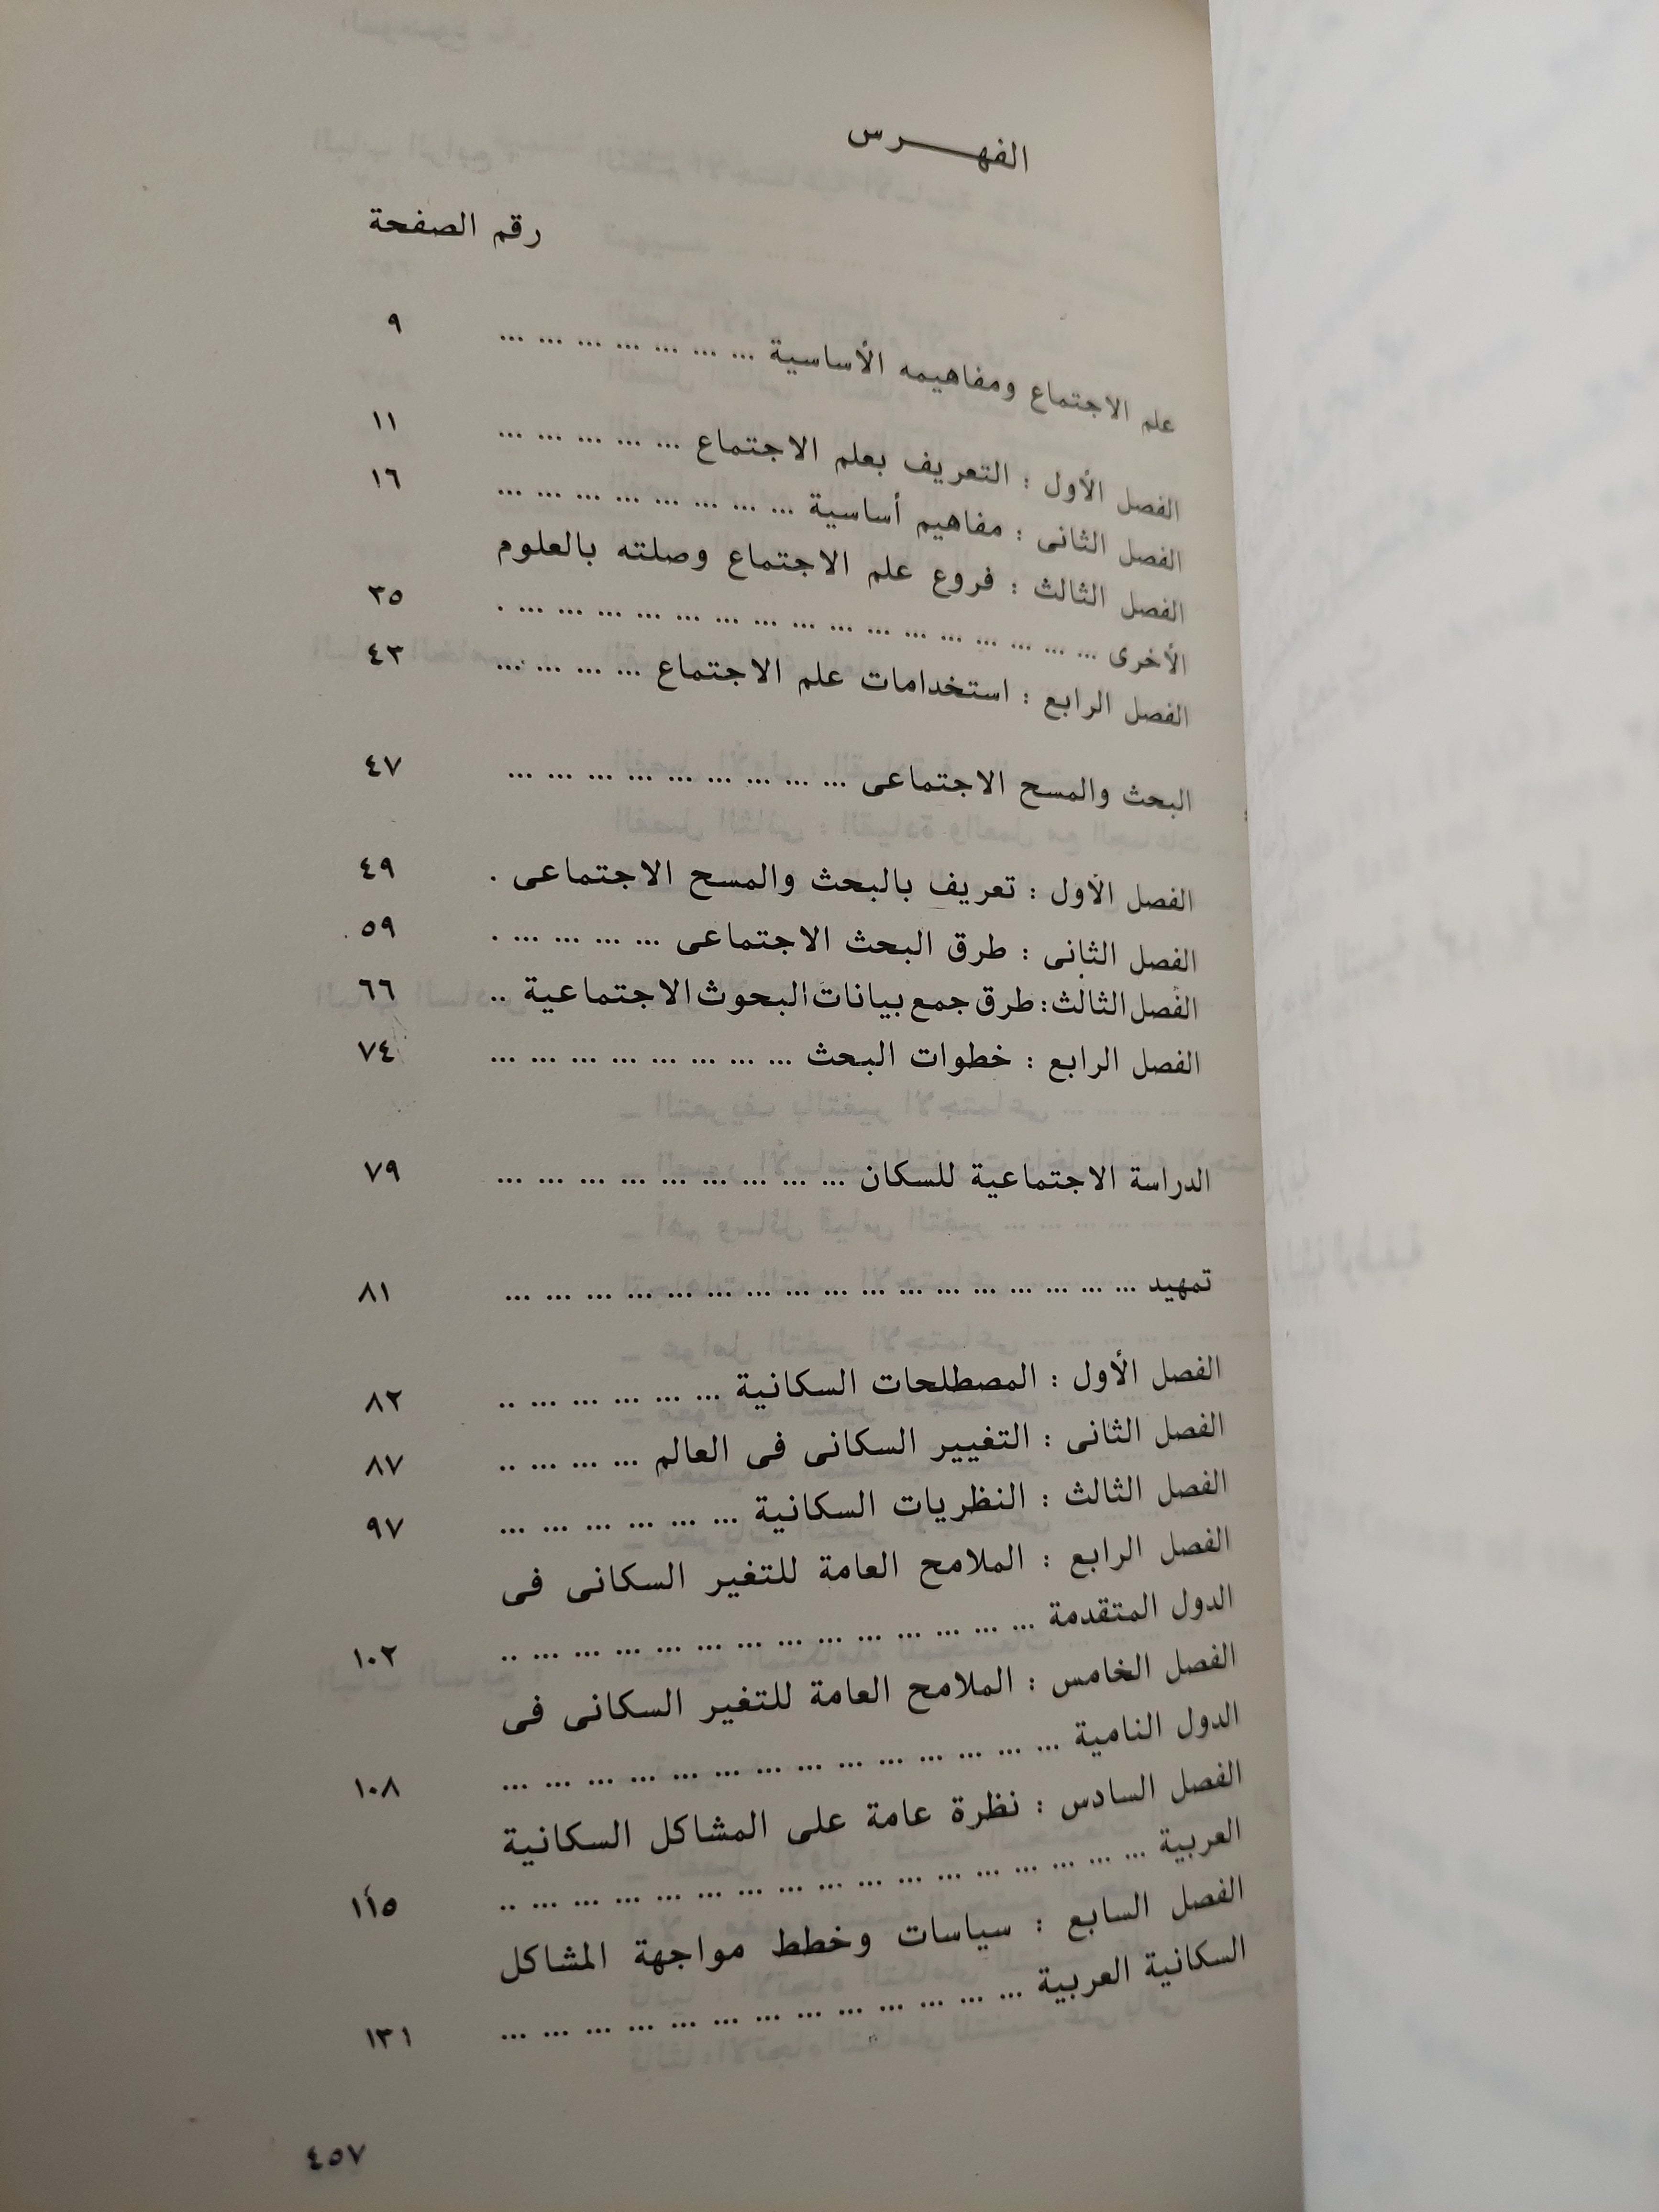 الفهـــرس
رقم الصفحة
علم الاجتماع ومفاهيمه الأساسية ... ... ... ... ... ... ... ٩
الفصل الأول : التعريف بعلم الاجتماع ... ... ... ... ... ١١
الفصل الثانى : مفاهيم أساسية ... ... ... ... ... ... ... ... ١٦
الفصل الثالث : فروع علم الاجتماع وصلته بالعلوم
الأخرى ... ... ... ... ... ... ... ... ... ... ... ... ... ... ... . ٣٥
الفصل الرابع : استخدامات علم الاجتماع ... ... ... ... ٤٣
البحث والمسح الاجتماعى ... ... ... ... ... ... ... ... ... ٤٧
الفصل الأول : تعريف بالبحث والمسح الاجتماعى . ٤٩
الفصل الثانى : طرق البحث الاجتماعى ... ... ... ... . ٥٩
الفصل الثالث : طرق جمع بيانات البحوث الاجتماعية .. ٦٦
الفصل الرابع : خطوات البحث ... ... ... ... ... ... ... ... ٧٤
الدراسة الاجتماعية للسكان ... ... ... ... ... ... ... ... ... ٧٩
تمهيد ... ... ... ... ... ... ... ... ... ... ... ... ... ... ... ... ٨١
الفصل الأول : المصطلحات السكانية ... ... ... ... ... .. ٨٢
الفصل الثانى : التغيير السكانى فى العالم ... ... ... .. ٨٧
الفصل الثالث : النظريات السكانية ... ... ... ... ... ... ٩٧
الفصل الرابع : الملامح العامة للتغير السكانى فى
الدول المتقدمة ... ... ... ... ... ... ... ... ... ... ... ... ... .. ١٠٢
الفصل الخامس : الملامح العامة للتغير السكانى فى
الدول النامية ... ... ... ... ... ... ... ... ... ... ... ... ... ... ١٠٨
الفصل السادس : نظرة عامة على المشاكل السكانية
العربية ... ... ... ... ... ... ... ... ... ... ... ... ... ... ... .. ١١٥
الفصل السابع : سياسات وخطط مواجهة المشاكل
السكانية العربية ... ... ... ... ... ... ... ... ... ... ... ... ... ١٣١
٤٥٧